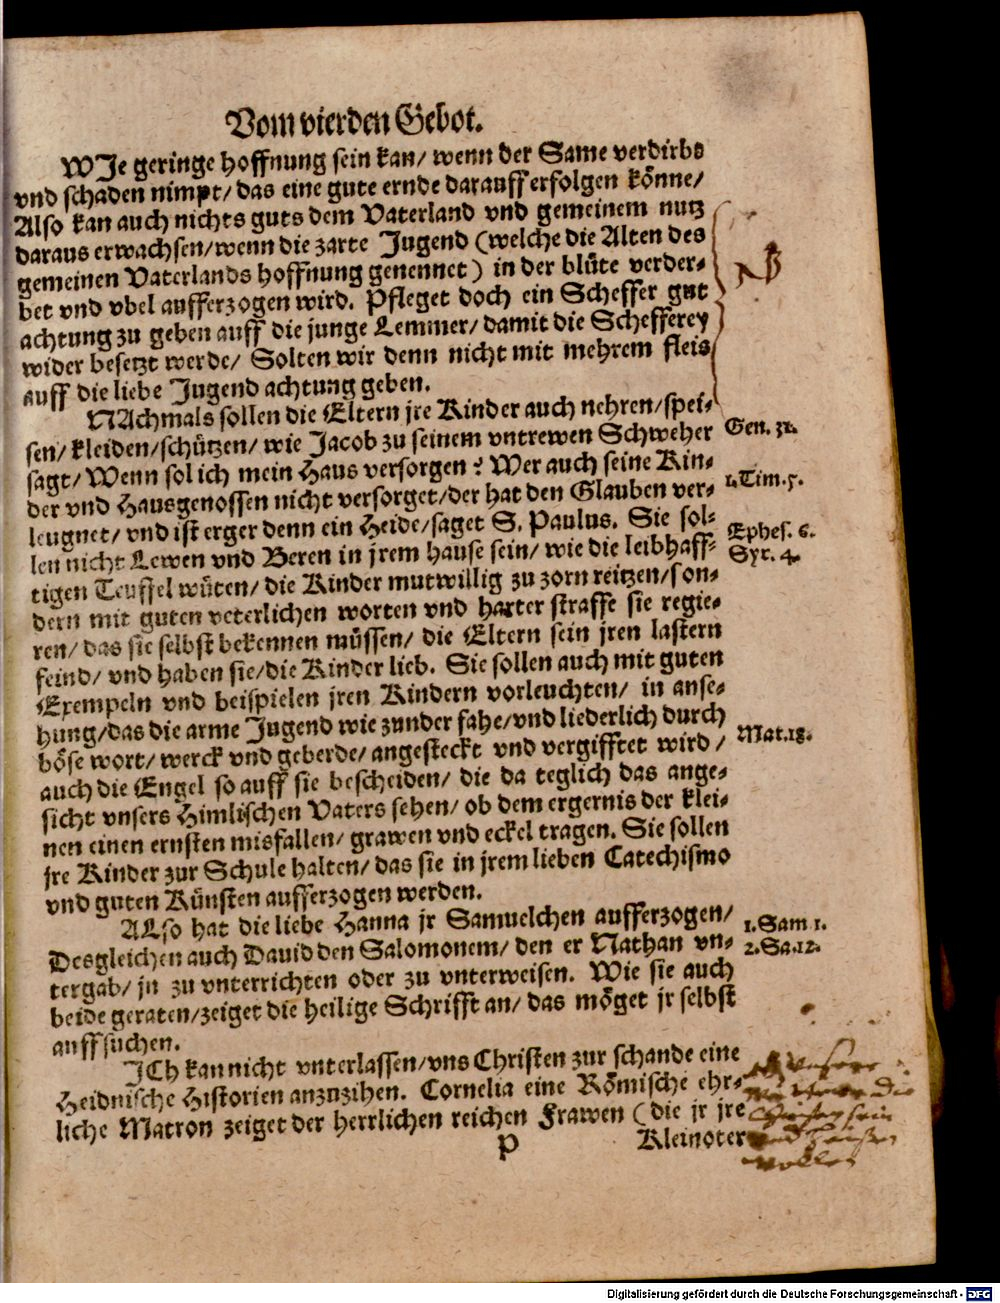 Vom vierden Gebot.
WJe geringe hoffnung sein kan/ wenn der Same verdirbs
vnd schaden nimpt/ das eine gute ernde darauff erfolgen könne/
Also kan auch nichts guts dem Vaterland vnd gemeinem nutz
daraus erwachsen/ wenn die zarte Jugend (welche die Alten des
gemeinen Vaterlands hoffnung genennet) in der blüte verder-
bet vnd vbel aufferzogen wird. Pfleget doch ein Scheffer gut
achtung zu geben auff die junge Lemmer/ damit die Schefferey
wider besetzt werde/ Solten wir denn nicht mit mehrem fleis
auff die liebe Jugend achtung geben.
NAchmals sollen die Eltern jre Kinder auch nehren/ spei-
sen/ kleiden/ schützen/ wie Jacob zu seinem vntrewen Schweher
Gen. 31.
sagt/ Wenn sol ich mein Haus versorgen? Wer auch seine Kin-
der vnd Hausgenossen nicht versorget/ der hat den Glauben ver-
1. Tim. 5.
leugnet/ vnd ist erger denn ein Heide/ saget S. Paulus. Sie sol-
len nicht Lewen vnd Beren in jrem hause sein/ wie die leibhaff-
Ephes. 6.
Syr. 4.
tigen Teuffel wüten/ die Kinder mutwillig zu zorn reitzen/ son-
dern mit guten veterlichen worten vnd harter straffe sie regie-
ren/ das sie selbst bekennen müssen/ die Eltern sein jren lastern
feind/ vnd haben sie/ die Kinder lieb. Sie sollen auch mit guten
Exempeln vnd beispielen jren Kindern vorleuchten/ in anse-
hung/ das die arme Jugend wie zunder fahe/ vnd liederlich durch
böse wort/ werck vnd geberde/ angesteckt vnd vergifftet wird/
Mat. 18.
auch die Engel so auff sie bescheiden/ die da teglich das ange-
sicht vnsers Himlischen Vaters sehen/ ob dem ergernis der klei-
nen einen ernsten misfallen/ grawen vnd eckel tragen. Sie sollen
jre Kinder zur Schule halten/ das sie in jrem lieben Catechismo
vnd guten Künsten aufferzogen werden.
ALso hat die liebe Hanna jr Samuelchen aufferzogen/
1. Sam 1.
Desgleichen auch Dauid den Salomonem/ den er Nathan vn-
2. Sa. 12.
tergab/ jn zu vnterrichten oder zu vnterweisen. Wie sie auch
beide geraten/ zeiget die heilige Schrifft an/ das möget jr selbst
auffsuchen.
JCh kan nicht vnterlassen/ vns Christen zur schande eine
Heidnische Historien anzuzihen. Cornelia eine Römische ehr-
liche Matron zeiget der herrlichen reichen Frawen (die jr jre
P
Kleinoter
Digitalisierung gefördert durch die Deutsche Forschungsgemeinschaft - DFG